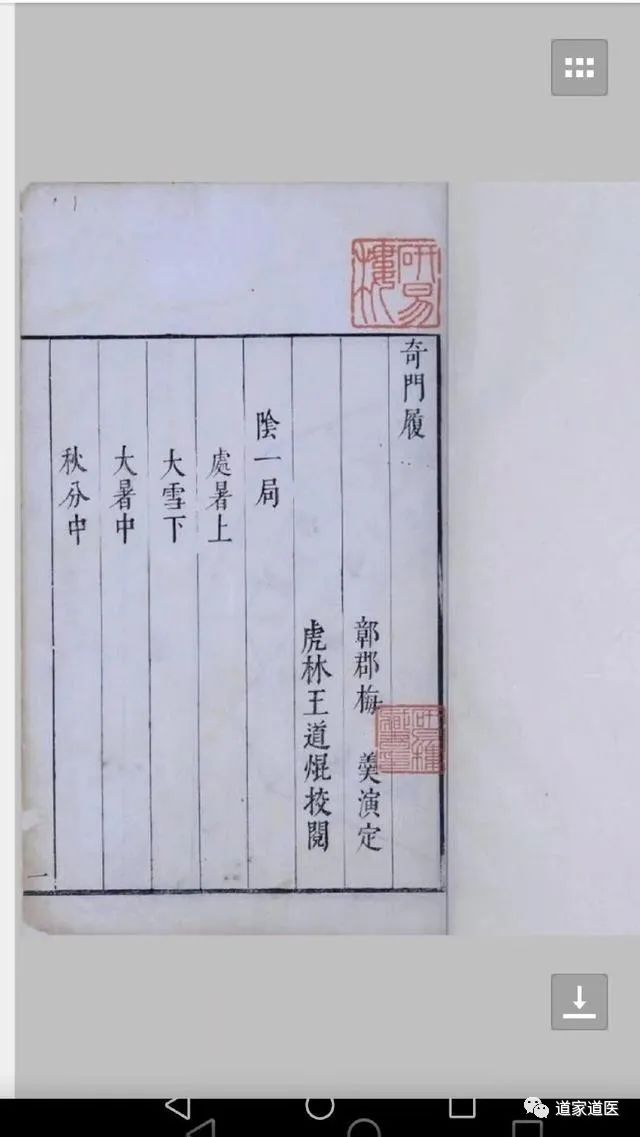 奇門履
鄣郡梅 羹演定
虎林王道焜挍閱
陰一局
處暑上
大雪下
大暑中
秋分中
一
研易樓
道家道医